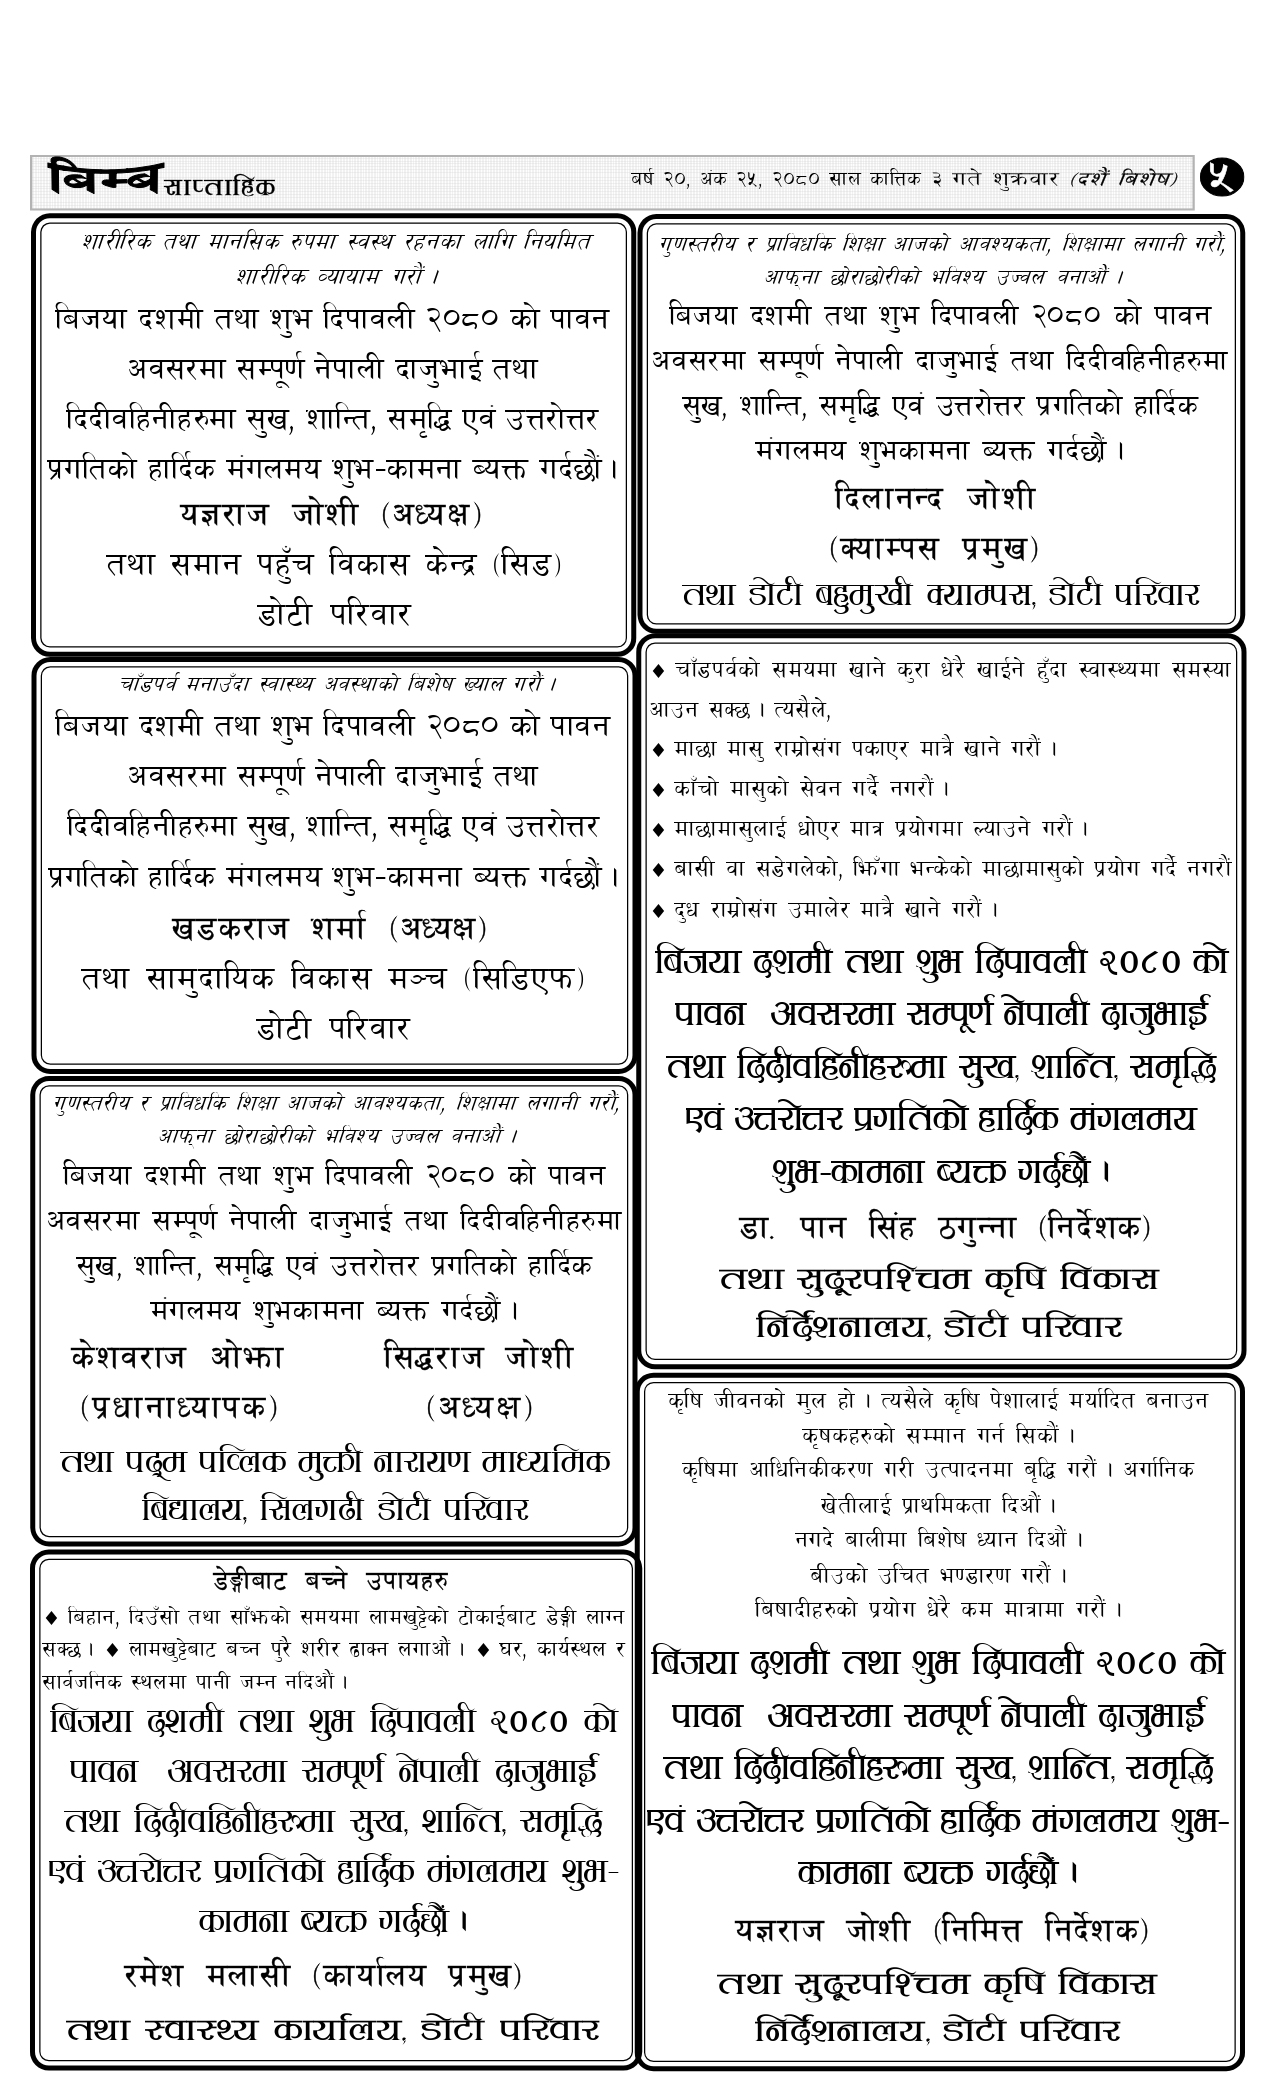 बिम्ब साप्ताहिक
वर्ष २०, अंक २५, २०८० साल कात्तिक ३ गते शुक्रवार (दशैं बिशेष)
५
शारीरिक तथा मानसिक रुपमा स्वस्थ रहनका लागि नियमित
शारीरिक व्यायाम गरौं ।
बिजया दशमी तथा शुभ दिपावली २०८० को पावन
अवसरमा सम्पूर्ण नेपाली दाजुभाई तथा
दिदीवहिनीहरुमा सुख, शान्ति, समृद्धि एवं उत्तरोत्तर
प्रगतिको हार्दिक मंगलमय शुभ-कामना ब्यक्त गर्दछौं ।
यज्ञराज जोशी (अध्यक्ष)
तथा समान पहुँच विकास केन्द्र (सिड)
डोटी परिवार
चाँडपर्व मनाउँदा स्वास्थ्य अवस्थाको बिशेष ख्याल गरौं ।
बिजया दशमी तथा शुभ दिपावली २०८० को पावन
अवसरमा सम्पूर्ण नेपाली दाजुभाई तथा
दिदीवहिनीहरुमा सुख, शान्ति, समृद्धि एवं उत्तरोत्तर
प्रगतिको हार्दिक मंगलमय शुभ-कामना ब्यक्त गर्दछौं ।
खडकराज शर्मा (अध्यक्ष)
तथा सामुदायिक विकास मञ्च (सिडिएफ)
डोटी परिवार
गुणस्तरीय र प्राविधकि शिक्षा आजको आवश्यकता, शिक्षामा लगानी गरौं,
आफ्ना छोराछोरीको भविश्य उज्वल वनाऔं ।
बिजया दशमी तथा शुभ दिपावली २०८० को पावन
अवसरमा सम्पूर्ण नेपाली दाजुभाई तथा दिदीवहिनीहरुमा
सुख, शान्ति, समृद्धि एवं उत्तरोत्तर प्रगतिको हार्दिक
मंगलमय शुभकामना ब्यक्त गर्दछौं ।
केशवराज ओझा सिद्धराज जोशी
(प्रधानाध्यापक) (अध्यक्ष)
तथा पद्म पव्लिक मुक्ती नारायण माध्यमिक
बिद्यालय, सिलगढी डोटी परिवार
डेङ्गीबाट बच्ने उपायहरु
♦ बिहान, दिउँसो तथा साँझको समयमा लामखुट्टेको टोकाईबाट डेङ्गी लाग्न
सक्छ । ♦ लामखुट्टेबाट बच्न पुरै शरीर ढाक्न लगाऔं । ♦ घर, कार्यस्थल र
सार्वजनिक स्थलमा पानी जम्न नदिऔं ।
बिजया दशमी तथा शुभ दिपावली २०८० को
पावन अवसरमा सम्पूर्ण नेपाली दाजुभाई
तथा दिदीवहिनीहरुमा सुख, शान्ति, समृद्धि
एवं उत्तरोत्तर प्रगतिको हार्दिक मंगलमय शुभ-
कामना ब्यक्त गर्दछौं ।
रमेश मलासी (कार्यालय प्रमुख)
तथा स्वास्थ्य कार्यालय, डोटी परिवार
गुणस्तरीय र प्राविधकि शिक्षा आजको आवश्यकता, शिक्षामा लगानी गरौं,
आफ्ना छोराछोरीको भविश्य उज्वल वनाऔं ।
बिजया दशमी तथा शुभ दिपावली २०८० को पावन
अवसरमा सम्पूर्ण नेपाली दाजुभाई तथा दिदीवहिनीहरुमा
सुख, शान्ति, समृद्धि एवं उत्तरोत्तर प्रगतिको हार्दिक
मंगलमय शुभकामना ब्यक्त गर्दछौं ।
दिलानन्द जोशी
(क्याम्पस प्रमुख)
तथा डोटी बहुमुखी क्याम्पस, डोटी परिवार
♦ चाँडपर्वको समयमा खाने कुरा धेरै खाईने हुँदा स्वास्थ्यमा समस्या
आउन सक्छ । त्यसैले,
♦ माछा मासु राम्रोसंग पकाएर मात्रै खाने गरौं ।
♦ काँचो मासुको सेवन गर्दै नगरौं ।
♦ माछामासुलाई धोएर मात्र प्रयोगमा ल्याउने गरौं ।
♦ बासी वा सडेगलेको, झिँगा भन्केको माछामासुको प्रयोग गर्दै नगरौं
♦ दुध राम्रोसंग उमालेर मात्रै खाने गरौं ।
बिजया दशमी तथा शुभ दिपावली २०८० को
पावन अवसरमा सम्पूर्ण नेपाली दाजुभाई
तथा दिदीवहिनीहरुमा सुख, शान्ति, समृद्धि
एवं उत्तरोत्तर प्रगतिको हार्दिक मंगलमय
शुभ-कामना ब्यक्त गर्दछौं ।
डा. पान सिंह ठगुन्ना (निर्देशक)
तथा सुदूरपश्चिम कृषि विकास
निर्देशनालय, डोटी परिवार
कृषि जीवनको मुल हो । त्यसैले कृषि पेशालाई मर्यादित बनाउन
कृषकहरुको सम्मान गर्न सिकौं ।
कृषिमा आधिनिकीकरण गरी उत्पादनमा बृद्धि गरौं । अर्गानिक
खेतीलाई प्राथमिकता दिऔं ।
नगदे बालीमा बिशेष ध्यान दिऔं ।
बीउको उचित भण्डारण गरौं ।
बिषादीहरुको प्रयोग धेरै कम मात्रामा गरौं ।
बिजया दशमी तथा शुभ दिपावली २०८० को
पावन अवसरमा सम्पूर्ण नेपाली दाजुभाई
तथा दिदीवहिनीहरुमा सुख, शान्ति, समृद्धि
एवं उत्तरोत्तर प्रगतिको हार्दिक मंगलमय शुभ-
कामना ब्यक्त गर्दछौं ।
यज्ञराज जोशी (निमित्त निर्देशक)
तथा सुदूरपश्चिम कृषि विकास
निर्देशनालय, डोटी परिवार